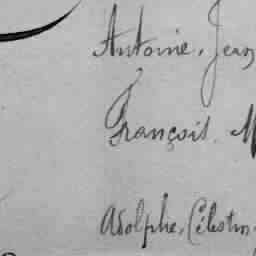 Antoine, Jean
François, M
Adolphe, Célestin